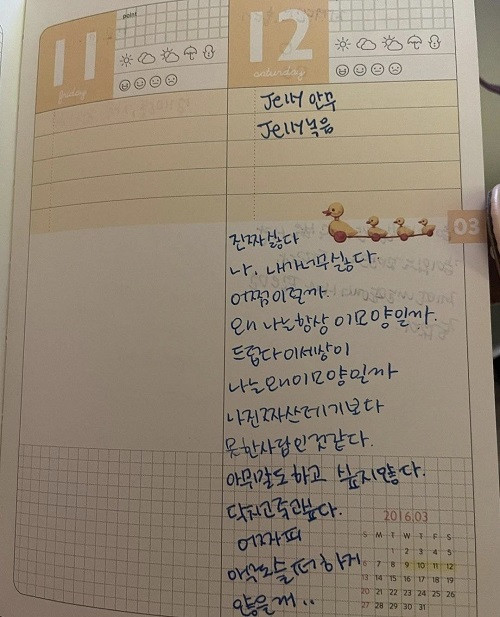 11
friday
point
12
saturday
Jelly 안무
Jelly 녹음
03
진짜 싫다
나, 내가 너무 싫다.
어쩜 이럴까
왜 나는 항상 이모양일까.
드럽다 이세상이
나는 왜 이모양일까
나진짜 쓰레기보다
못한사람인것같다.
아무말도 하고 싶지않다.
닥치고 죽고싶다.
어짜피
아무도 슬퍼하지
않을걸..
2016.03
S M T W T F S
1 2 3 4 5
6 7 8 9 10 11 12
13 14 15 16 17 18 19
20 21 22 23 24 25 26
27 28 29 30 31